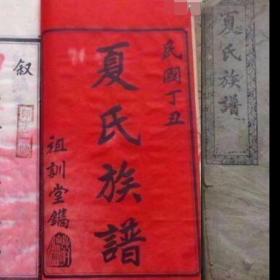 民國丁丑
夏氏族譜
祖訓堂鐫
夏氏族譜
叙